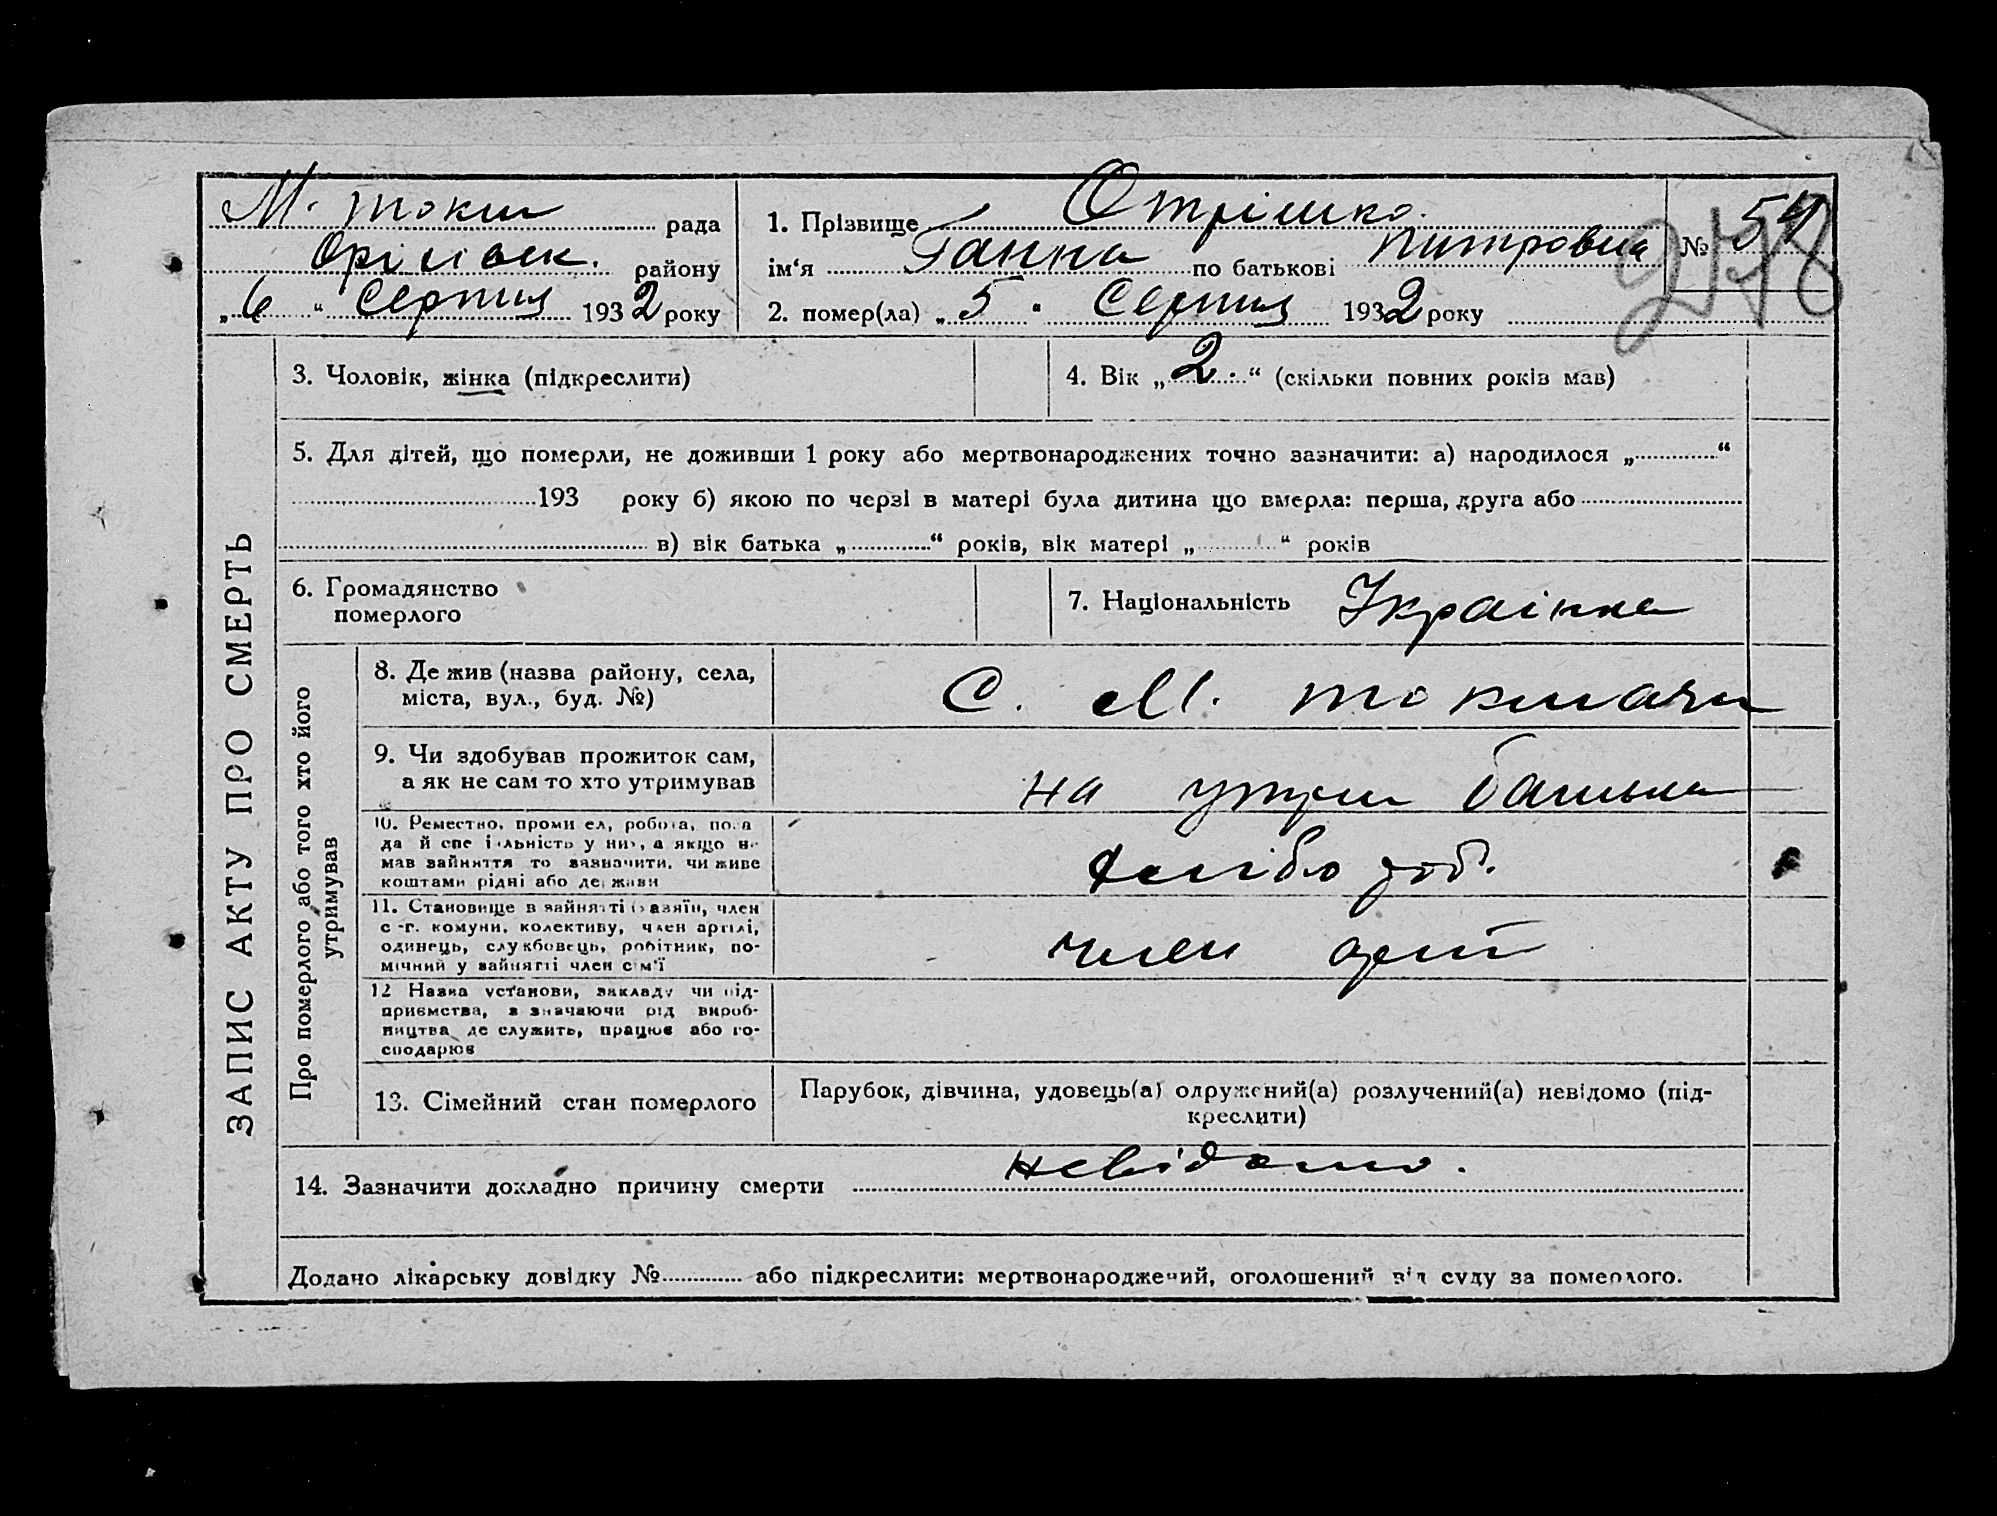 М. Токм рада
Оріхівск. району
„ 6 “ Серпня 1932 року
1. Прізвище Отрішко
ім‘я Ганна по батькові Питровна
№ 54
278
2. помер(ла) „ 5 “ Серпня 1932 року
3. Чоловік, жінка (підкреслити)
4. Вік „ 2. “ (скільки повних років мав)
5. Для дітей, що померли, не доживши 1 року або мертвонароджених точно зазначити: а) народилося „ “
193 року б) якою по черзі в матері була дитина що вмерла: перша, друга або
в) вік батька „ “ років, вік матері „ “ років
6. Громадянство
померлого
7. Національність Украінка
ЗАПИС АКТУ ПРО СМЕРТЬ
Про померлого або того хто його
утримував
8. Де жив (назва району, села,
міста, вул., буд. №)
С. М. Токмачи
9. Чи здобував прожиток сам,
а як не сам то хто утримував
на утрим батька
10. Реместно, проми ел, робота, поса
да й спе і льність у них, а якщо не
мав зайняття то зазначити, чи живе
коштами рідні або держави
хлібо роб.
11. Становище в зайнятті (хазяїн, член
с.-г. комуни, колективу, член артілі,
одинець, службовець, робітник, по-
мічний у зайнятті член сім'ї
член арт
12 Назва установи, закладу чи під-
приємства, зазначаючи рід вироб-
ництва де служить, працює або го-
сподарює
13. Сімейний стан померлого
Парубок, дівчина, удовець(а) одружений(а) розлучений(а) невідомо (під-
креслити)
14. Зазначити докладно причину смерти невідомо.
Додано лікарську довідку № або підкреслити: мертвонароджений, оголошений від суду за померлого.